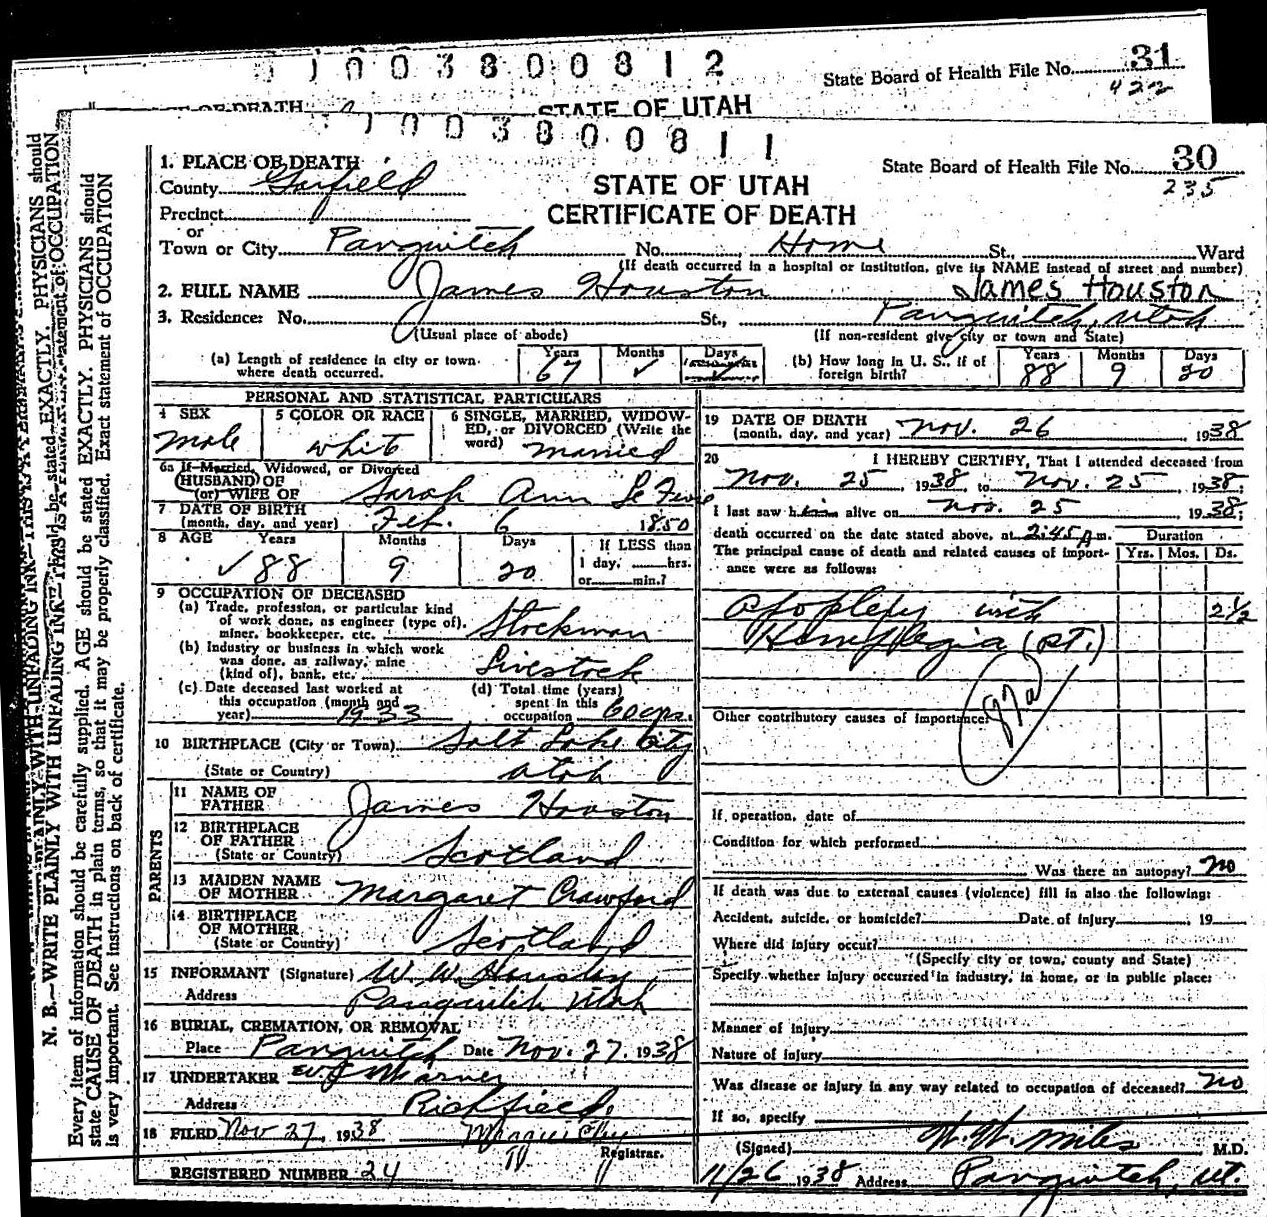 0 1 0 0 3 8 0 0 8 1 2
State Board of Health File No. 31
422
STATE OF UTAH
1 0 0 3 8 0 0 8 1 1
State Board of Health File No. 30
235
STATE OF UTAH
CERTIFICATE OF DEATH
1. PLACE OF DEATH
County Garfield
Precinct
or
Town or City Panguitch No. Home St., Ward
(If death occurred in a hospital or institution, give its NAME instead of street and number)
2. FULL NAME James Houston James Houston
3. Residence: No. St., Panguitch, Utah
(Usual place of abode) (If non-resident give city or town and State)
(a) Length of residence in city or town where death occurred. Years 67 Months ✓ Days
(b) How long in U. S., if of foreign birth? Years 88 Months 9 Days 20
PERSONAL AND STATISTICAL PARTICULARS
4 SEX male
5 COLOR OR RACE white
6 SINGLE, MARRIED, WIDOWED, or DIVORCED (Write the word) married
6a If Married, Widowed, or Divorced
HUSBAND OF
(or) WIFE OF Sarah Ann Le Fevre
7 DATE OF BIRTH
(month, day, and year) Feb. 6 1850
8 AGE Years 88 Months 9 Days 20
If LESS than
1 day, hrs.
or min.?
9 OCCUPATION OF DECEASED
(a) Trade, profession, or particular kind
of work done, as engineer (type of),
miner, bookkeeper, etc. Stockman
(b) Industry or business in which work
was done, as railway, mine
(kind of), bank, etc. Livestock
(c) Date deceased last worked at
this occupation (month and
year) 1933
(d) Total time (years)
spent in this
occupation 60 yrs.
10 BIRTHPLACE (City or Town) Salt Lake City
(State or Country) Utah
PARENTS
11 NAME OF
FATHER James Houston
12 BIRTHPLACE
OF FATHER
(State or Country) Scotland
13 MAIDEN NAME
OF MOTHER Margaret Crawford
14 BIRTHPLACE
OF MOTHER
(State or Country) Scotland
15 INFORMANT (Signature) W. W. Houston
Address Panguitch Utah
16 BURIAL, CREMATION, OR REMOVAL
Place Panguitch Date Nov. 27. 1938
17 UNDERTAKER
Address Richfield
18 FILED Nov 27, 1938
Registrar.
REGISTERED NUMBER 24
19 DATE OF DEATH
(month, day, and year) Nov. 26 1938
20 I HEREBY CERTIFY, That I attended deceased from
Nov. 25 1938, to Nov. 25 1938;
I last saw him alive on Nov. 25 1938;
death occurred on the date stated above, at 2:45 A.m.
The principal cause of death and related causes of importance were as follows:
Duration
Yrs. Mos. Ds.
apoplexy with 2 1/2
Hemiplegia (rt.)
Other contributory causes of importance:
If operation, date of
Condition for which performed
Was there an autopsy? No
If death was due to external causes (violence) fill in also the following:
Accident, suicide, or homicide? Date of injury , 19
Where did injury occur?
(Specify city or town, county and State)
Specify whether injury occurred in industry, in home, or in public place:
Manner of injury
Nature of injury
Was disease or injury in any way related to occupation of deceased? No
If so, specify
(Signed) W. W. Miles M.D.
11/26 1938 Address Panguitch, Ut.
N. B.—WRITE PLAINLY WITH UNFADING INK—THIS IS A PERMANENT
Every item of information should be carefully supplied. AGE should be stated EXACTLY. PHYSICIANS should
state CAUSE OF DEATH in plain terms, so that it may be properly classified. Exact statement of OCCUPATION
is very important. See instructions on back of certificate.